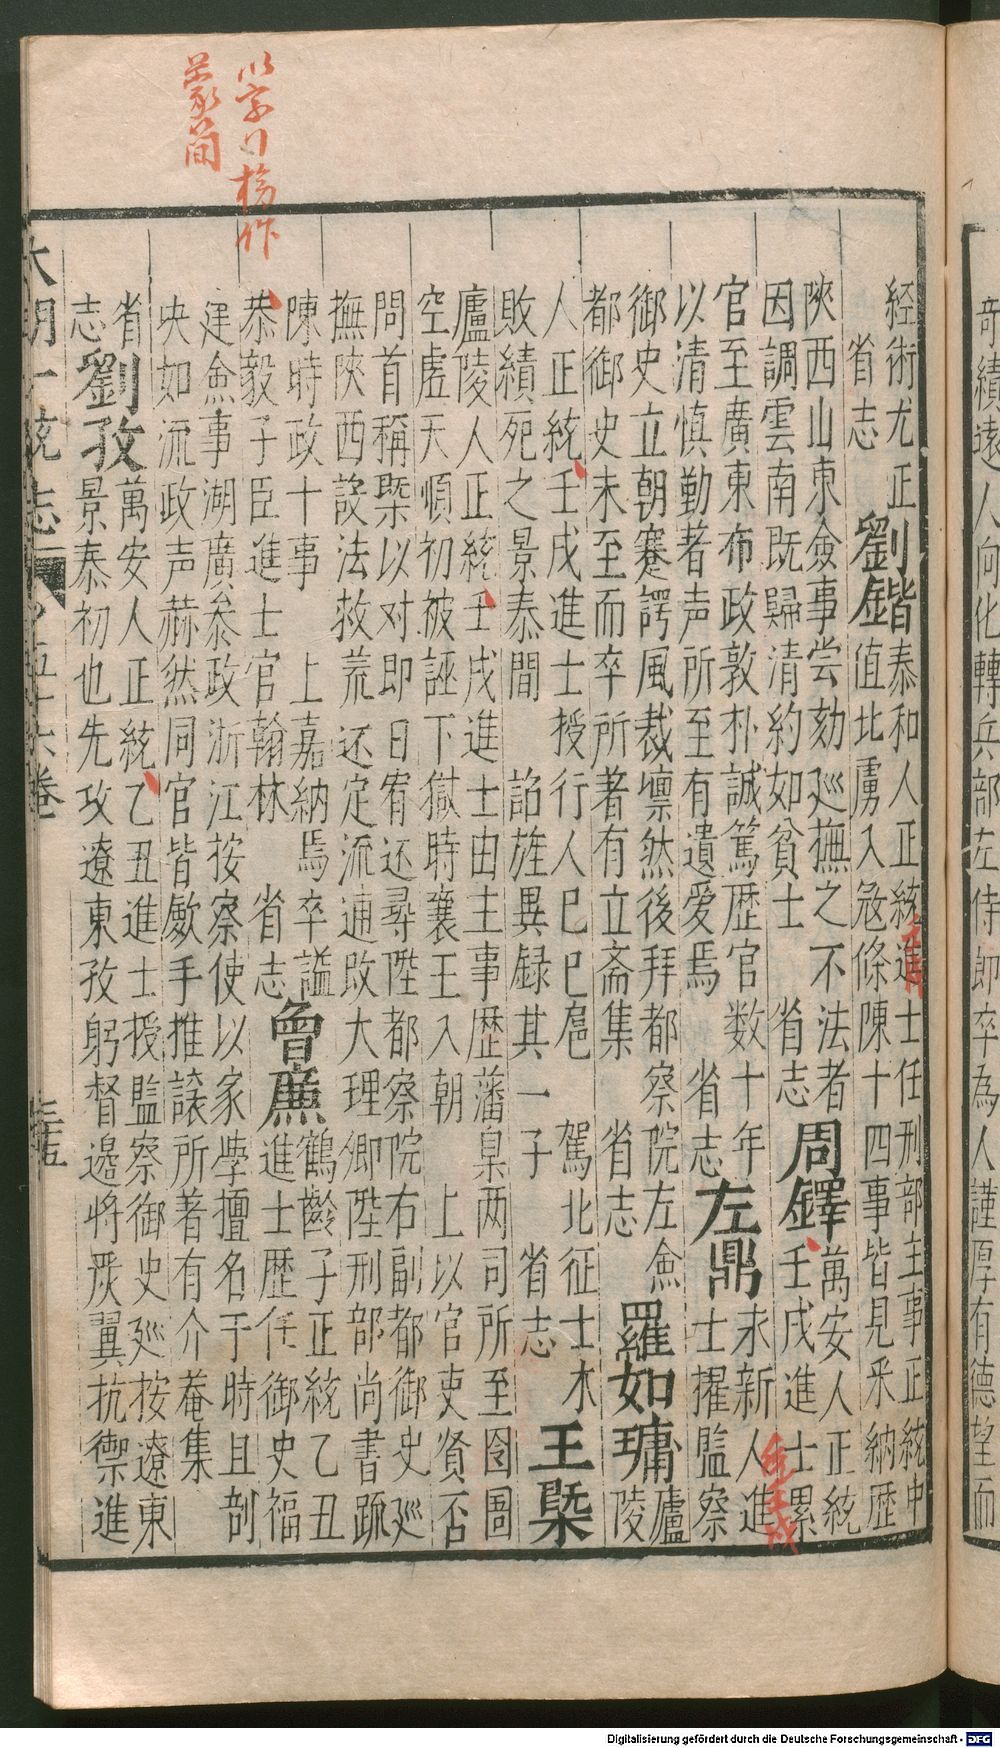 奇績遠人向化轉兵部左侍郎卒為人謹厚有德望而
經術尤正
省志
劉鍇
泰和人正統進士任刑部主事正統中
值北虜入寇條陳十四事皆見采納歷
陝西山東僉事尝劾巡撫之不法者
因調雲南既歸清約如貧士 省志
周鐸
萬安人正統
壬戌進士累
官至廣東布政敦朴誠篤歷官数十年
以清慎勤著声所至有遺愛焉 省志
左鼎
永新人進
士擢監察
御史立朝蹇諤風裁壇然後拜都察院左僉
都御史未至而卒所著有立斋集 省志
羅如墉
廬
陵
人正統壬戌進士授行人己巳扈 駕北征士木
敗績死之景泰間 詔旌異録其一子 省志
王槩
廬陵人正統壬戌進士由主事歷藩臬两司所至囹圄
空虛天順初被誣下獄時襄王入朝 上以官吏賢否
問首稱槩以对即日宥还尋陞都察院右副都御史巡
撫陝西設法救荒还定流逋改大理卿陞刑部尚書疏
陳時政十事 上嘉納焉卒謚
恭毅子臣進士官翰林 省志
曾廉
鶴齡子正統乙丑
進士歷任御史福
建僉事湖廣叅政浙江按察使以家學擅名于時且剖
决如流政声赫然同官皆歛手推讓所著有介菴集
省
志
劉孜
萬安人正統乙丑進士授監察御史巡按遼東
景泰初也先攻遼東孜躬督邊將嚴翼抗禦進
大明一統志 之五十六卷 三十五
以字行榜作
蒙簡
Digitalisierung gefördert durch die Deutsche Forschungsgemeinschaft - DFG